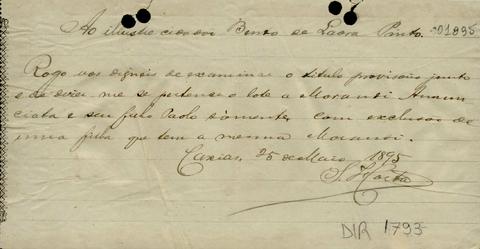 Ao illustre cidadão Bento de Lavra Pinto. 01895
Rogo vos digneis de examinar o titulo provisorio junto
e de dizer me se pertence o lote a Morandi Annun
ciata e seu filho Paolo sómente, com exclusão de
uma filha que tem a mesma Morandi.
Caxias, 25 de Maio 1895
DIR 1793